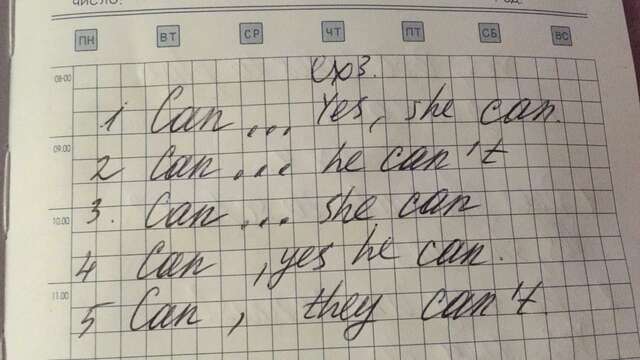 ЧИСЛО:
ПН ВТ СР ЧТ ПТ СБ ВС
08:00
ex3.
1 Can ... Yes, she can.
09:00
2 Can ... he can't
3. Can ... she can
10:00
4 Can , yes he can.
11:00
5 Can , they can't.